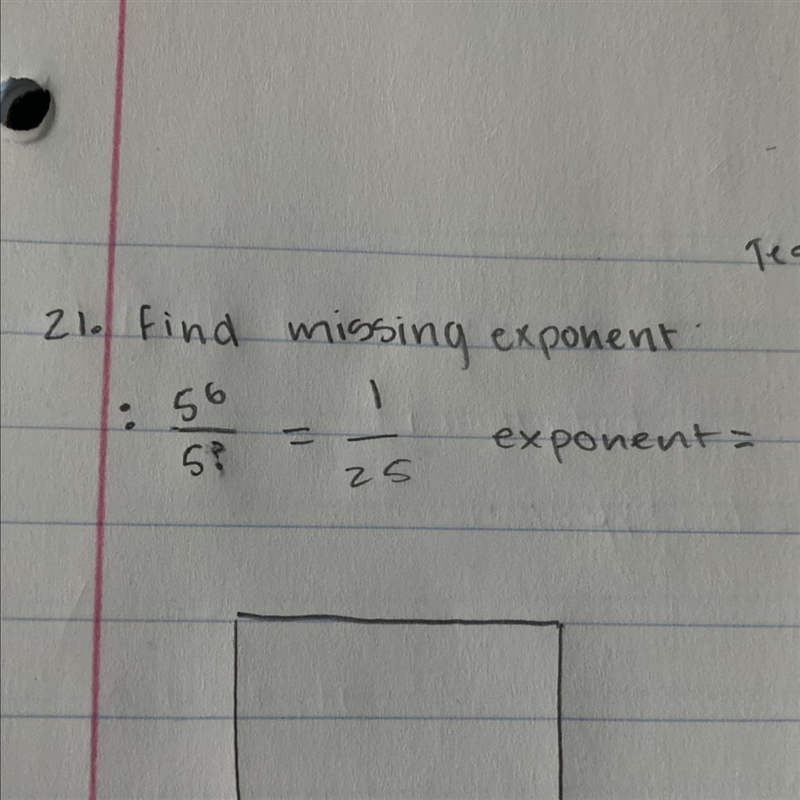 21. Find missing exponent
: 5⁶/5^? = 1/25 exponent =